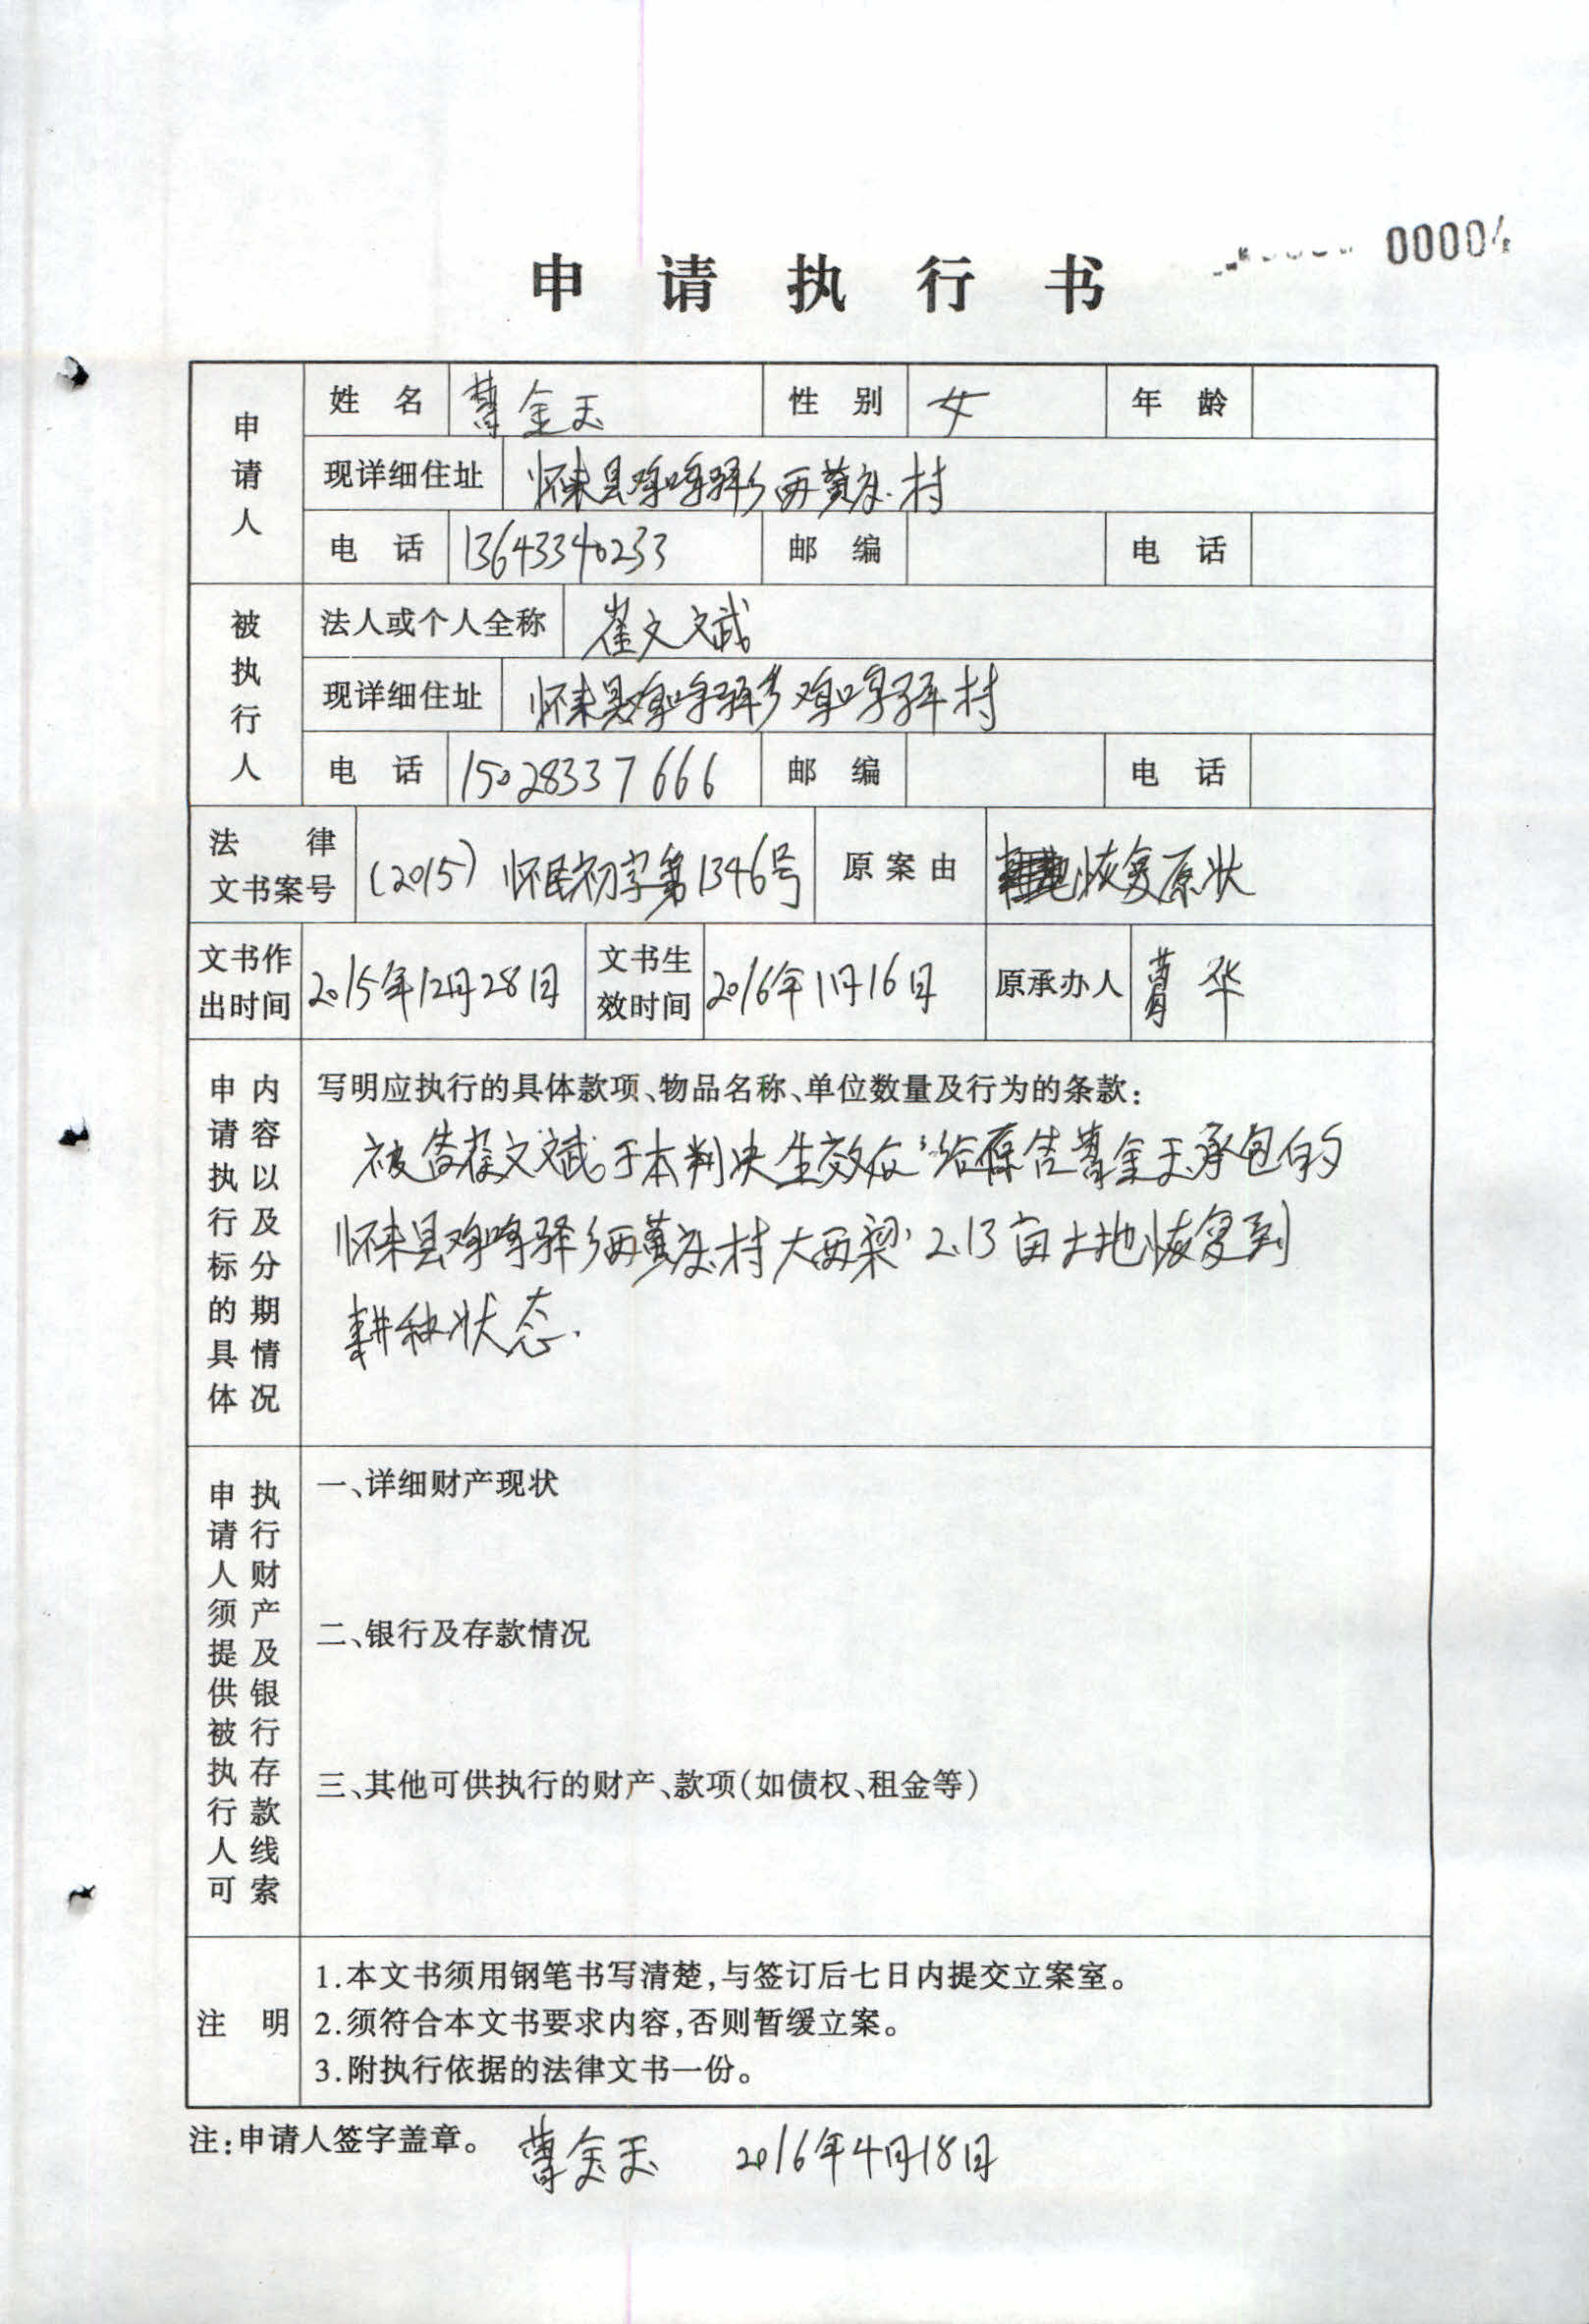 00004
申请执行书
申请人 姓名 曹金玉 性别 女 年龄
现详细住址 怀来县鸡鸣驿乡西黄庄村
电话 13643340233 邮编 电话
被执行人 法人或个人全称 崔文斌
现详细住址 怀来县鸡鸣驿乡鸡鸣驿村
电话 15028337666 邮编 电话
法律文书案号 (2015)怀民初字第1346号 原案由 恢复原状
文书作出时间 2015年12月28日 文书生效时间 2016年1月16日 原承办人 曹华
申请执行标的具体内容以及分期情况
写明应执行的具体款项、物品名称、单位数量及行为的条款:
被告崔文斌于本判决生效后给原告曹金玉承包的
怀来县鸡鸣驿乡西黄庄村大西梁2.13亩土地恢复到
耕种状态.
申请人须提供被执行人可执行财产及银行存款线索
一、详细财产现状
二、银行及存款情况
三、其他可供执行的财产、款项(如债权、租金等)
注明
1.本文书须用钢笔书写清楚,与签订后七日内提交立案室。
2.须符合本文书要求内容,否则暂缓立案。
3.附执行依据的法律文书一份。
注:申请人签字盖章。 曹金玉 2016年4月18日